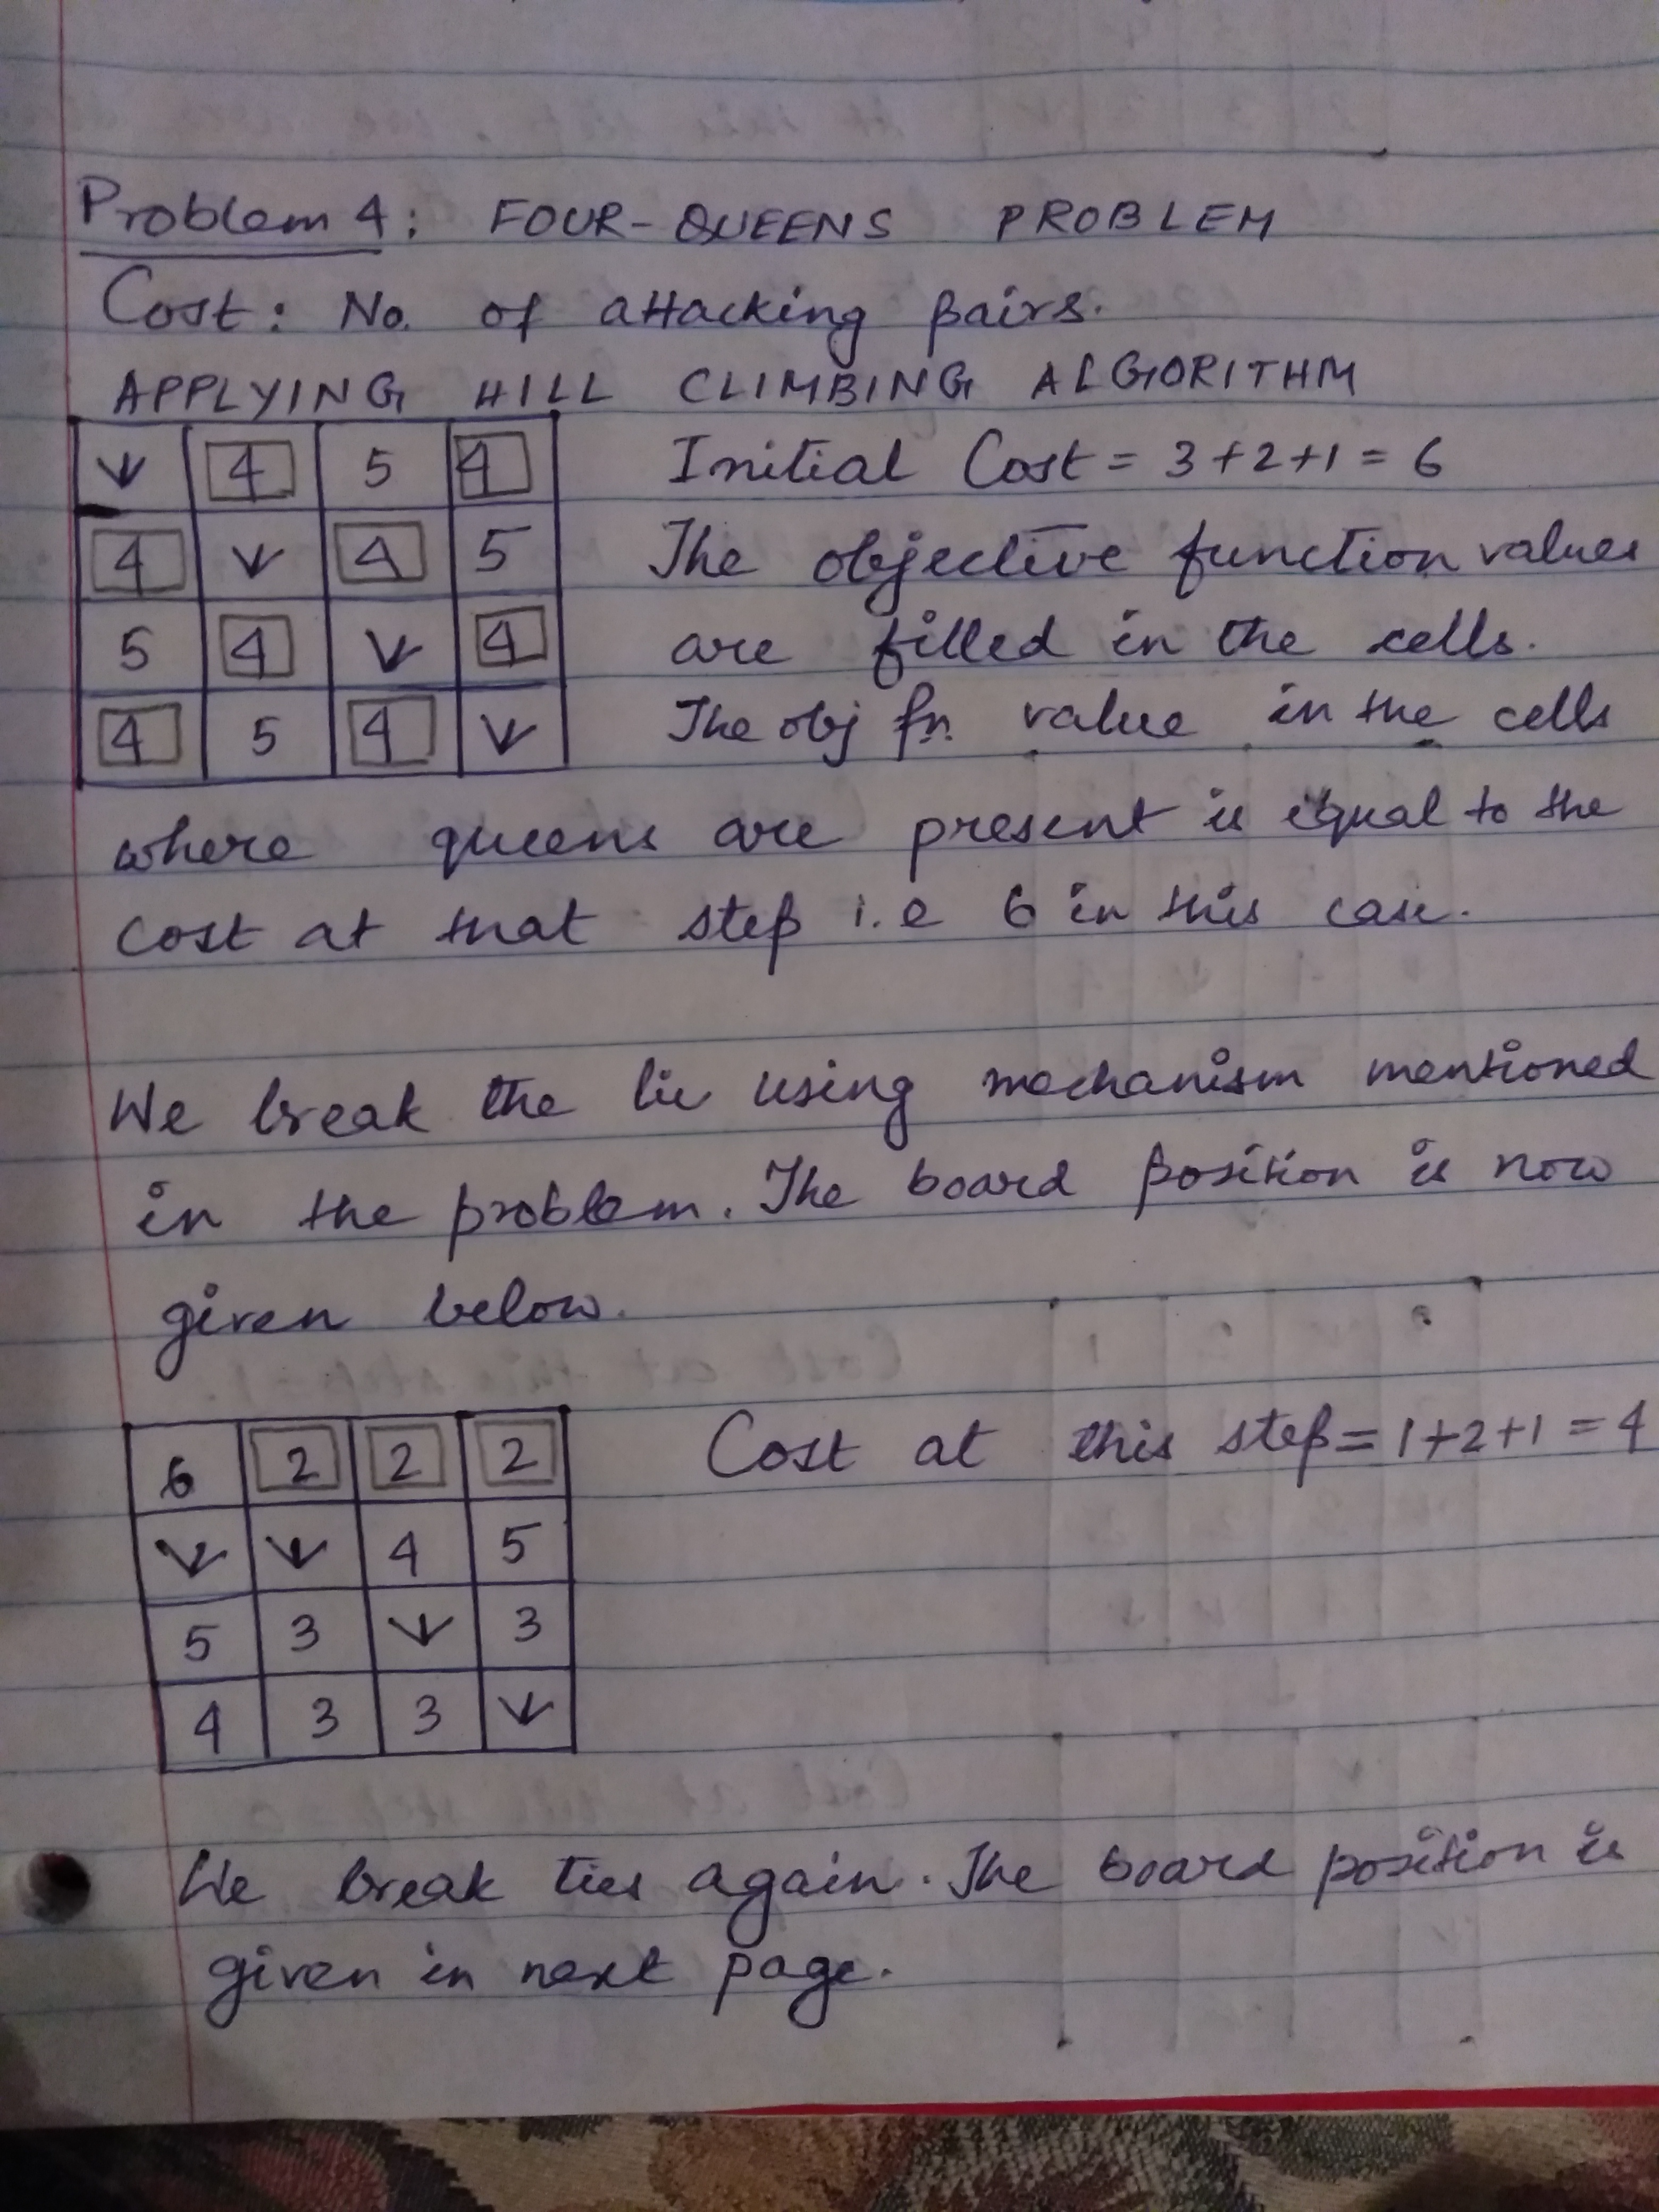 Problem 4: FOUR-QUEENS PROBLEM
Cost: No. of attacking pairs.
APPLYING HILL CLIMBING ALGORITHM
↓ 4 5 4 Initial Cost = 3+2+1 = 6
4 ↓ 4 5 The objective function values
5 4 ↓ 4 are filled in the cells.
4 5 4 ↓ The obj fn. value in the cells
where queens are present is equal to the
cost at that step i.e 6 in this case.
We break the tie using mechanism mentioned
in the problem. The board position is now
given below.
6 2 2 2 Cost at this step = 1+2+1 = 4
↓ ↓ 4 5
5 3 ↓ 3
4 3 3 ↓
We break ties again. The board position is
given in next page.